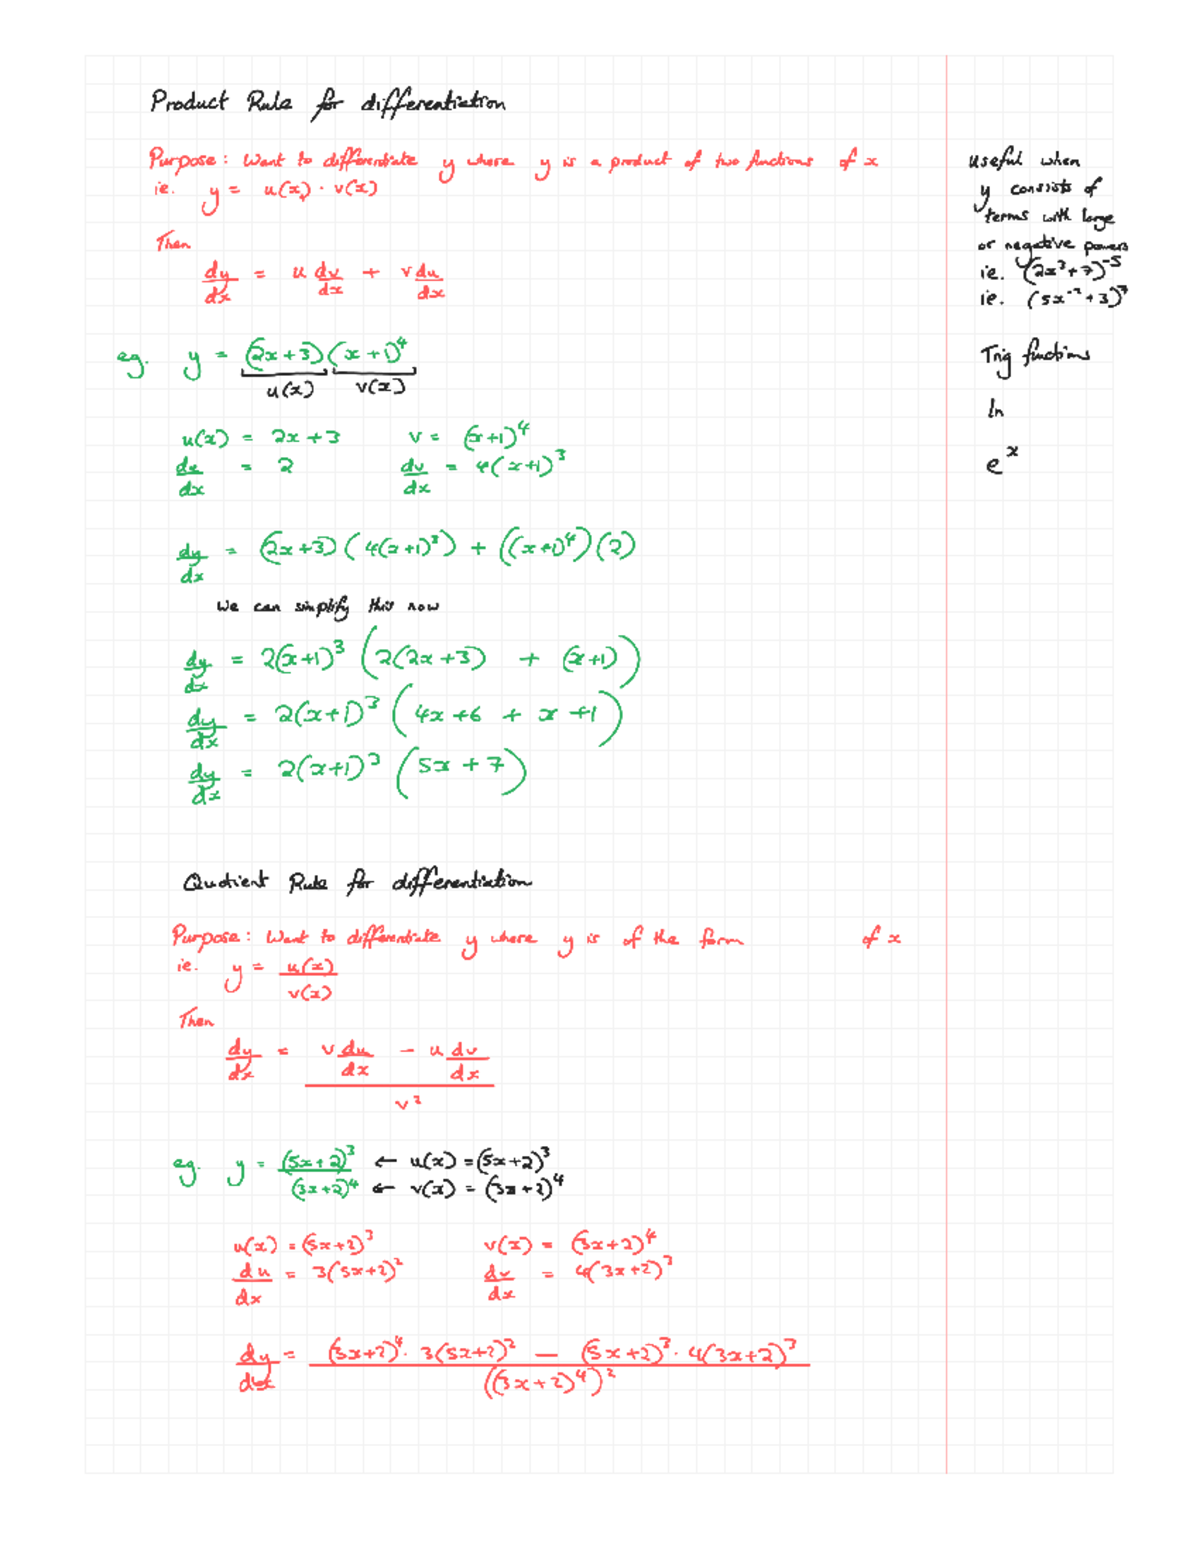 Product Rule for differentiation
Purpose: Want to differentiate y where y is a product of two functions of x
ie. y = u(x) · v(x)
Then
dy/dx = u dv/dx + v du/dx
eg. y = (2x+3)(x+1)^4
u(x) v(x)
u(x) = 2x+3 v = (x+1)^4
du/dx = 2 dv/dx = 4(x+1)^3
dy/dx = (2x+3)(4(x+1)^3) + ((x+1)^4)(2)
We can simplify this now
dy/dx = 2(x+1)^3 (2(2x+3) + (x+1))
dy/dx = 2(x+1)^3 (4x+6 + x+1)
dy/dx = 2(x+1)^3 (5x+7)
useful when
y consists of
terms with large
or negative powers
ie. (2x^3+7)^-5
ie. (5x^-2+3)^7
Trig functions
ln
e^x
Quotient Rule for differentiation
Purpose: Want to differentiate y where y is of the form of x
ie. y = u(x)/v(x)
Then
dy/dx = (v du/dx - u dv/dx)/v^2
eg. y = (5x+2)^3 ← u(x) = (5x+2)^3
(3x+2)^4 ← v(x) = (3x+2)^4
u(x) = (5x+2)^3 v(x) = (3x+2)^4
du/dx = 3(5x+2)^2 dv/dx = 4(3x+2)^3
dy/dx = ((3x+2)^4 · 3(5x+2)^2 - (5x+2)^3 · 4(3x+2)^3)/((3x+2)^4)^2